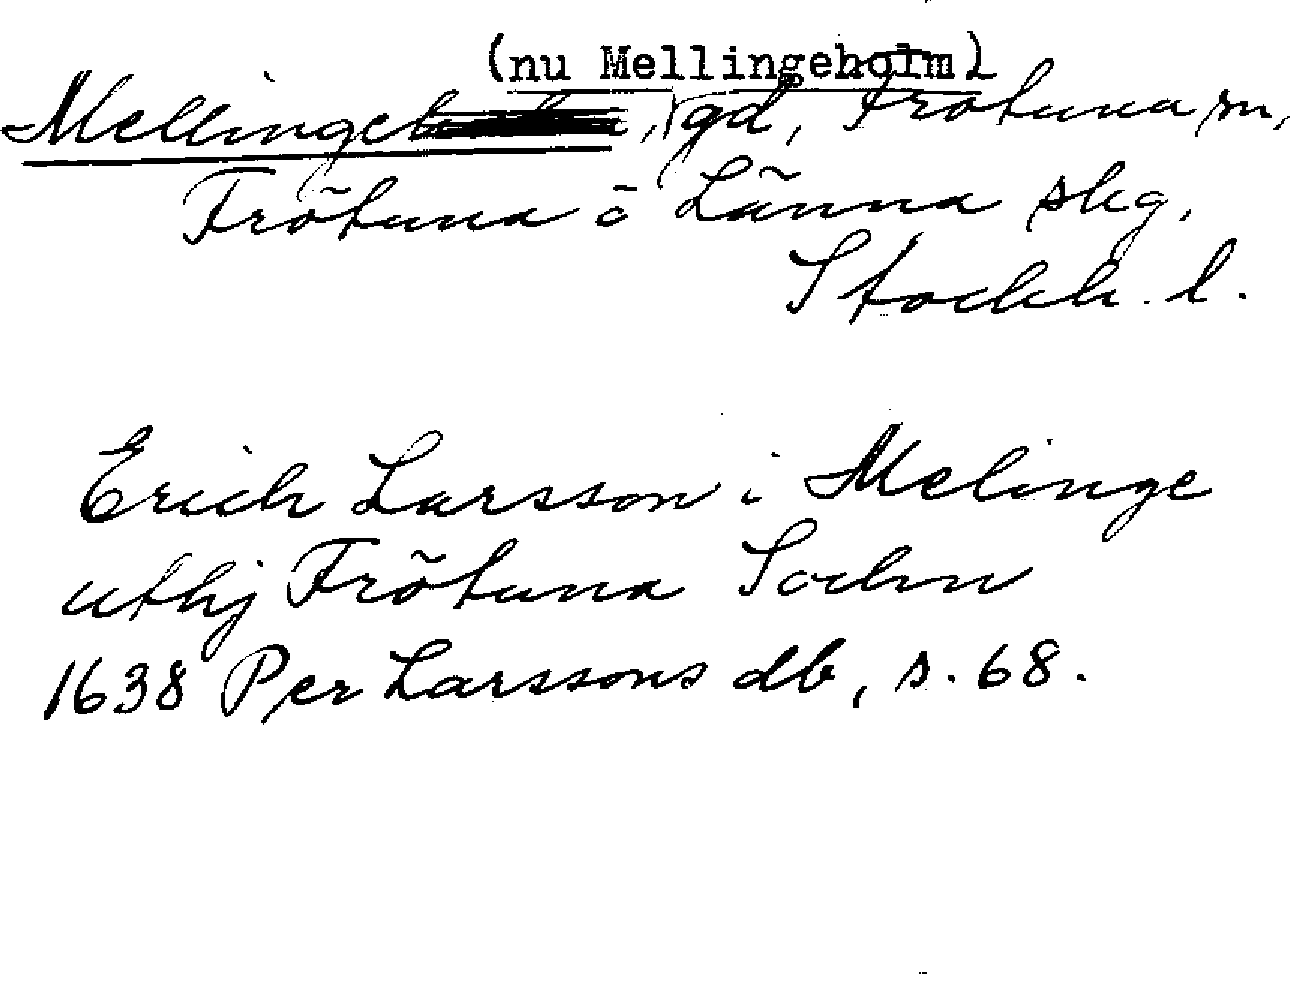 (nu Mellingeholm)
Mellinge, gd, Frötuna sn,
Frötuna o Länna skg.
Stockh. l.
Erich Larsson i Melinge
uthj Frötuna Sochn
1638 Per Larssons db, s. 68.